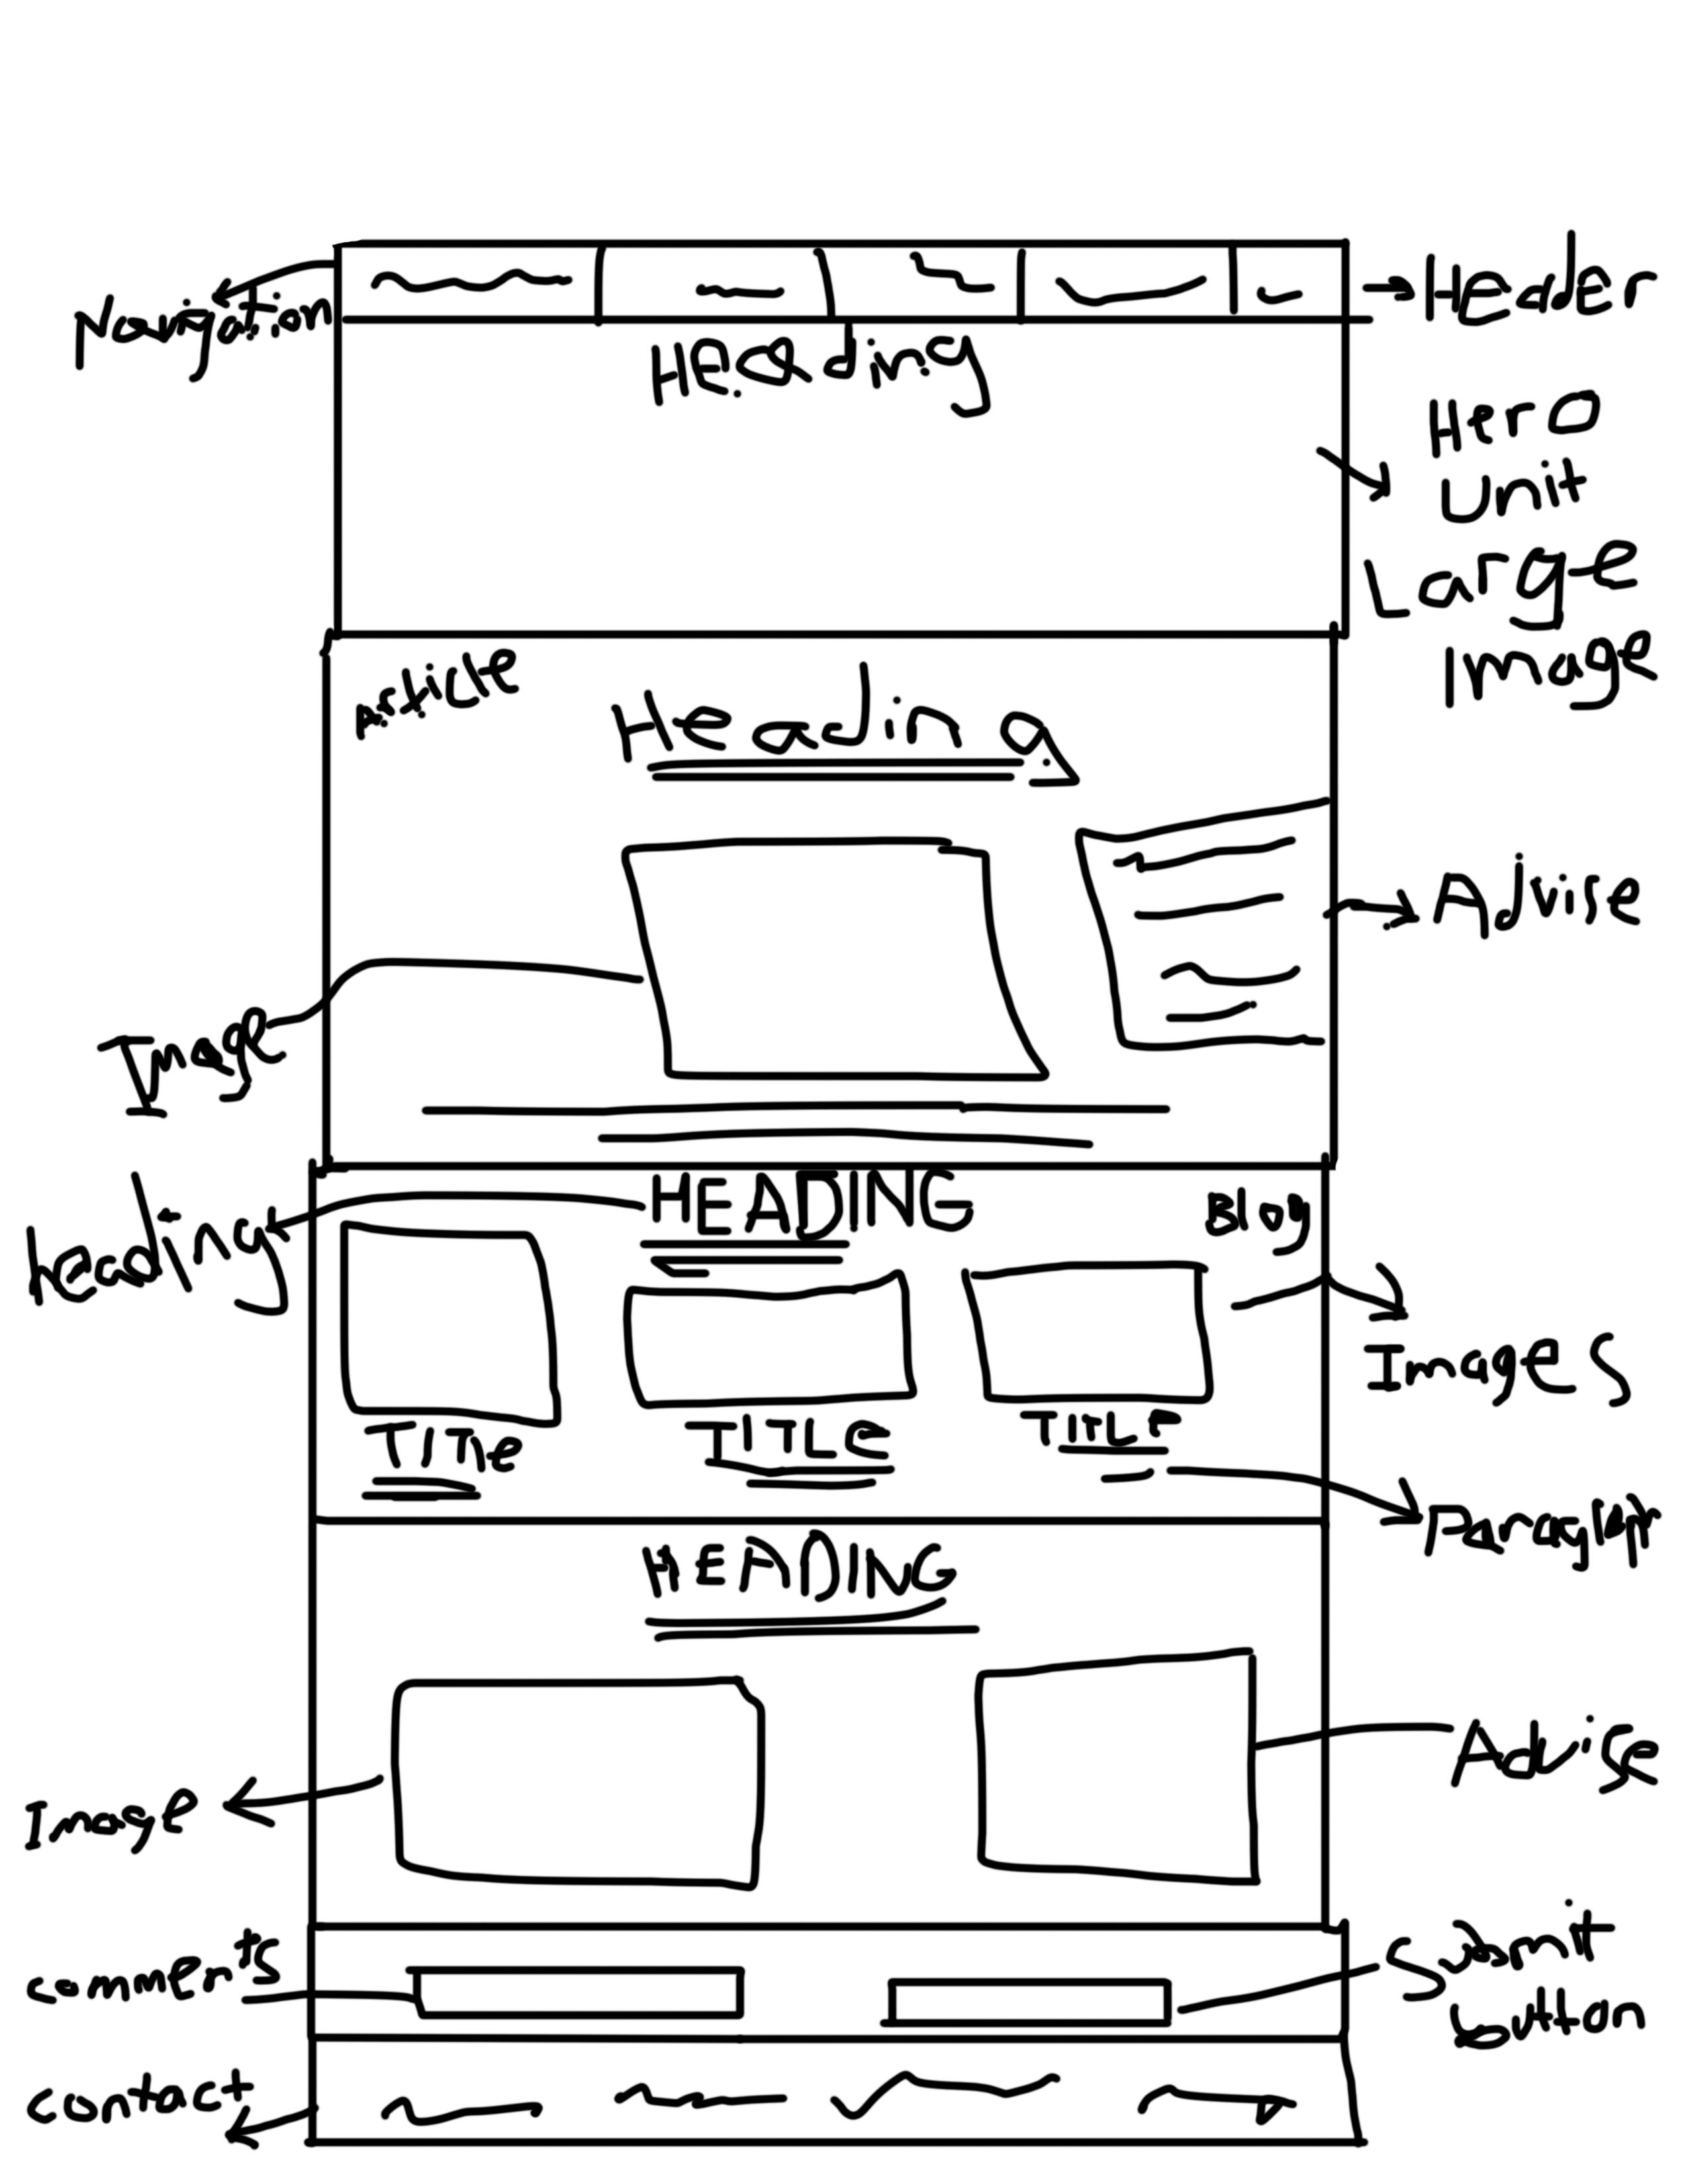 Navigation
Header
Heading
Hero
Unit
Large
Image
Article
Heading
Advise
Image
HEADING
Blog
Heading
Images
Title
TITLE
TITLE
Paragraph
HEADING
Advise
Image
Submit
button
comments
contact